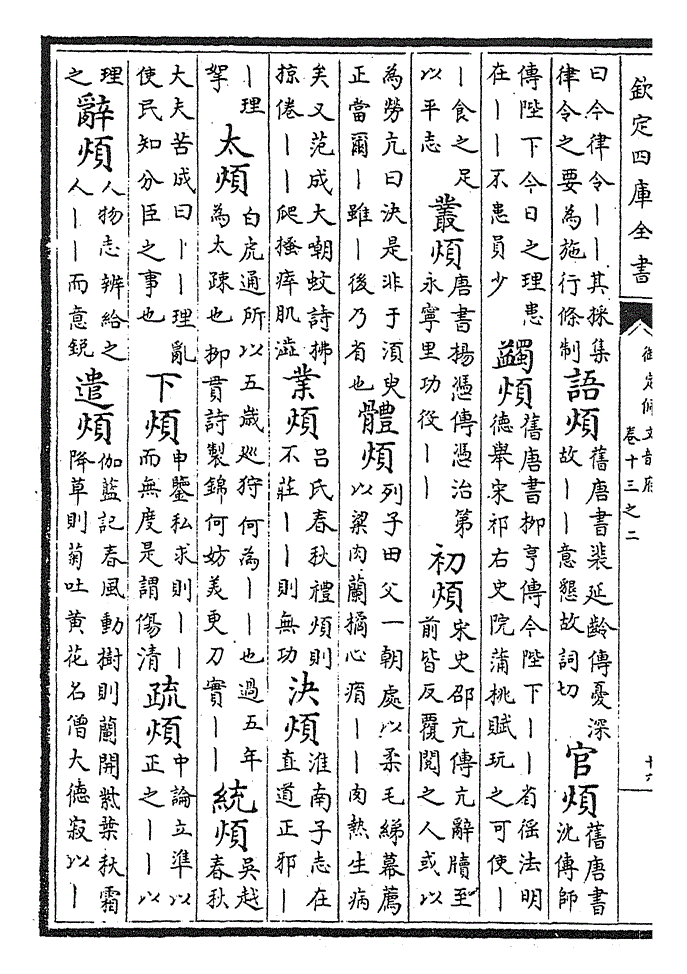 欽定四庫全書
御定佩文韻府
卷十三之二
十六
曰今律令丨丨其採集
律令之要為施行條制
語煩
舊唐書裴延齡傳憂深
故丨丨意懇故詞切
官煩
舊唐書
沈傳師
傳陛下今日之理患
在丨丨不患員少
蠲煩
舊唐書柳亨傳今陛下丨丨省徭法明
德舉宋祁右史院蒲桃賦玩之可使丨
丨食之足
以平志
叢煩
唐書楊憑傳憑治第
永寧里功役丨丨
初煩
宋史邵亢傳亢辭牘至
前皆反覆閱之人或以
為勞亢曰決是非于須臾
正當爾丨雖丨後乃省也
體煩
列子田父一朝處以柔毛綈幕薦
以粱肉蘭橘心痟丨丨肉熱生病
矣又范成大嘲蚊詩拂
掠倦丨丨爬搔痺肌澁
業煩
呂氏春秋禮煩則
不莊丨丨則無功
決煩
淮南子志在
直道正邪丨
丨理
挐
太煩
白虎通所以五歲巡狩何為丨丨也過五年
為太疎也柳貫詩製錦何妨美更刀實丨丨
統煩
吳越
春秋
大夫苦成曰丨丨理亂
使民知分臣之事也
下煩
申鑒私求則丨丨
而無度是謂傷清
疏煩
中論立準以
正之丨丨以
理
之
辭煩
人物志辨給之
人丨丨而意銳
遣煩
伽藍記春風動樹則蘭開紫葉秋霜
降草則菊吐黄花名僧大德寂以丨